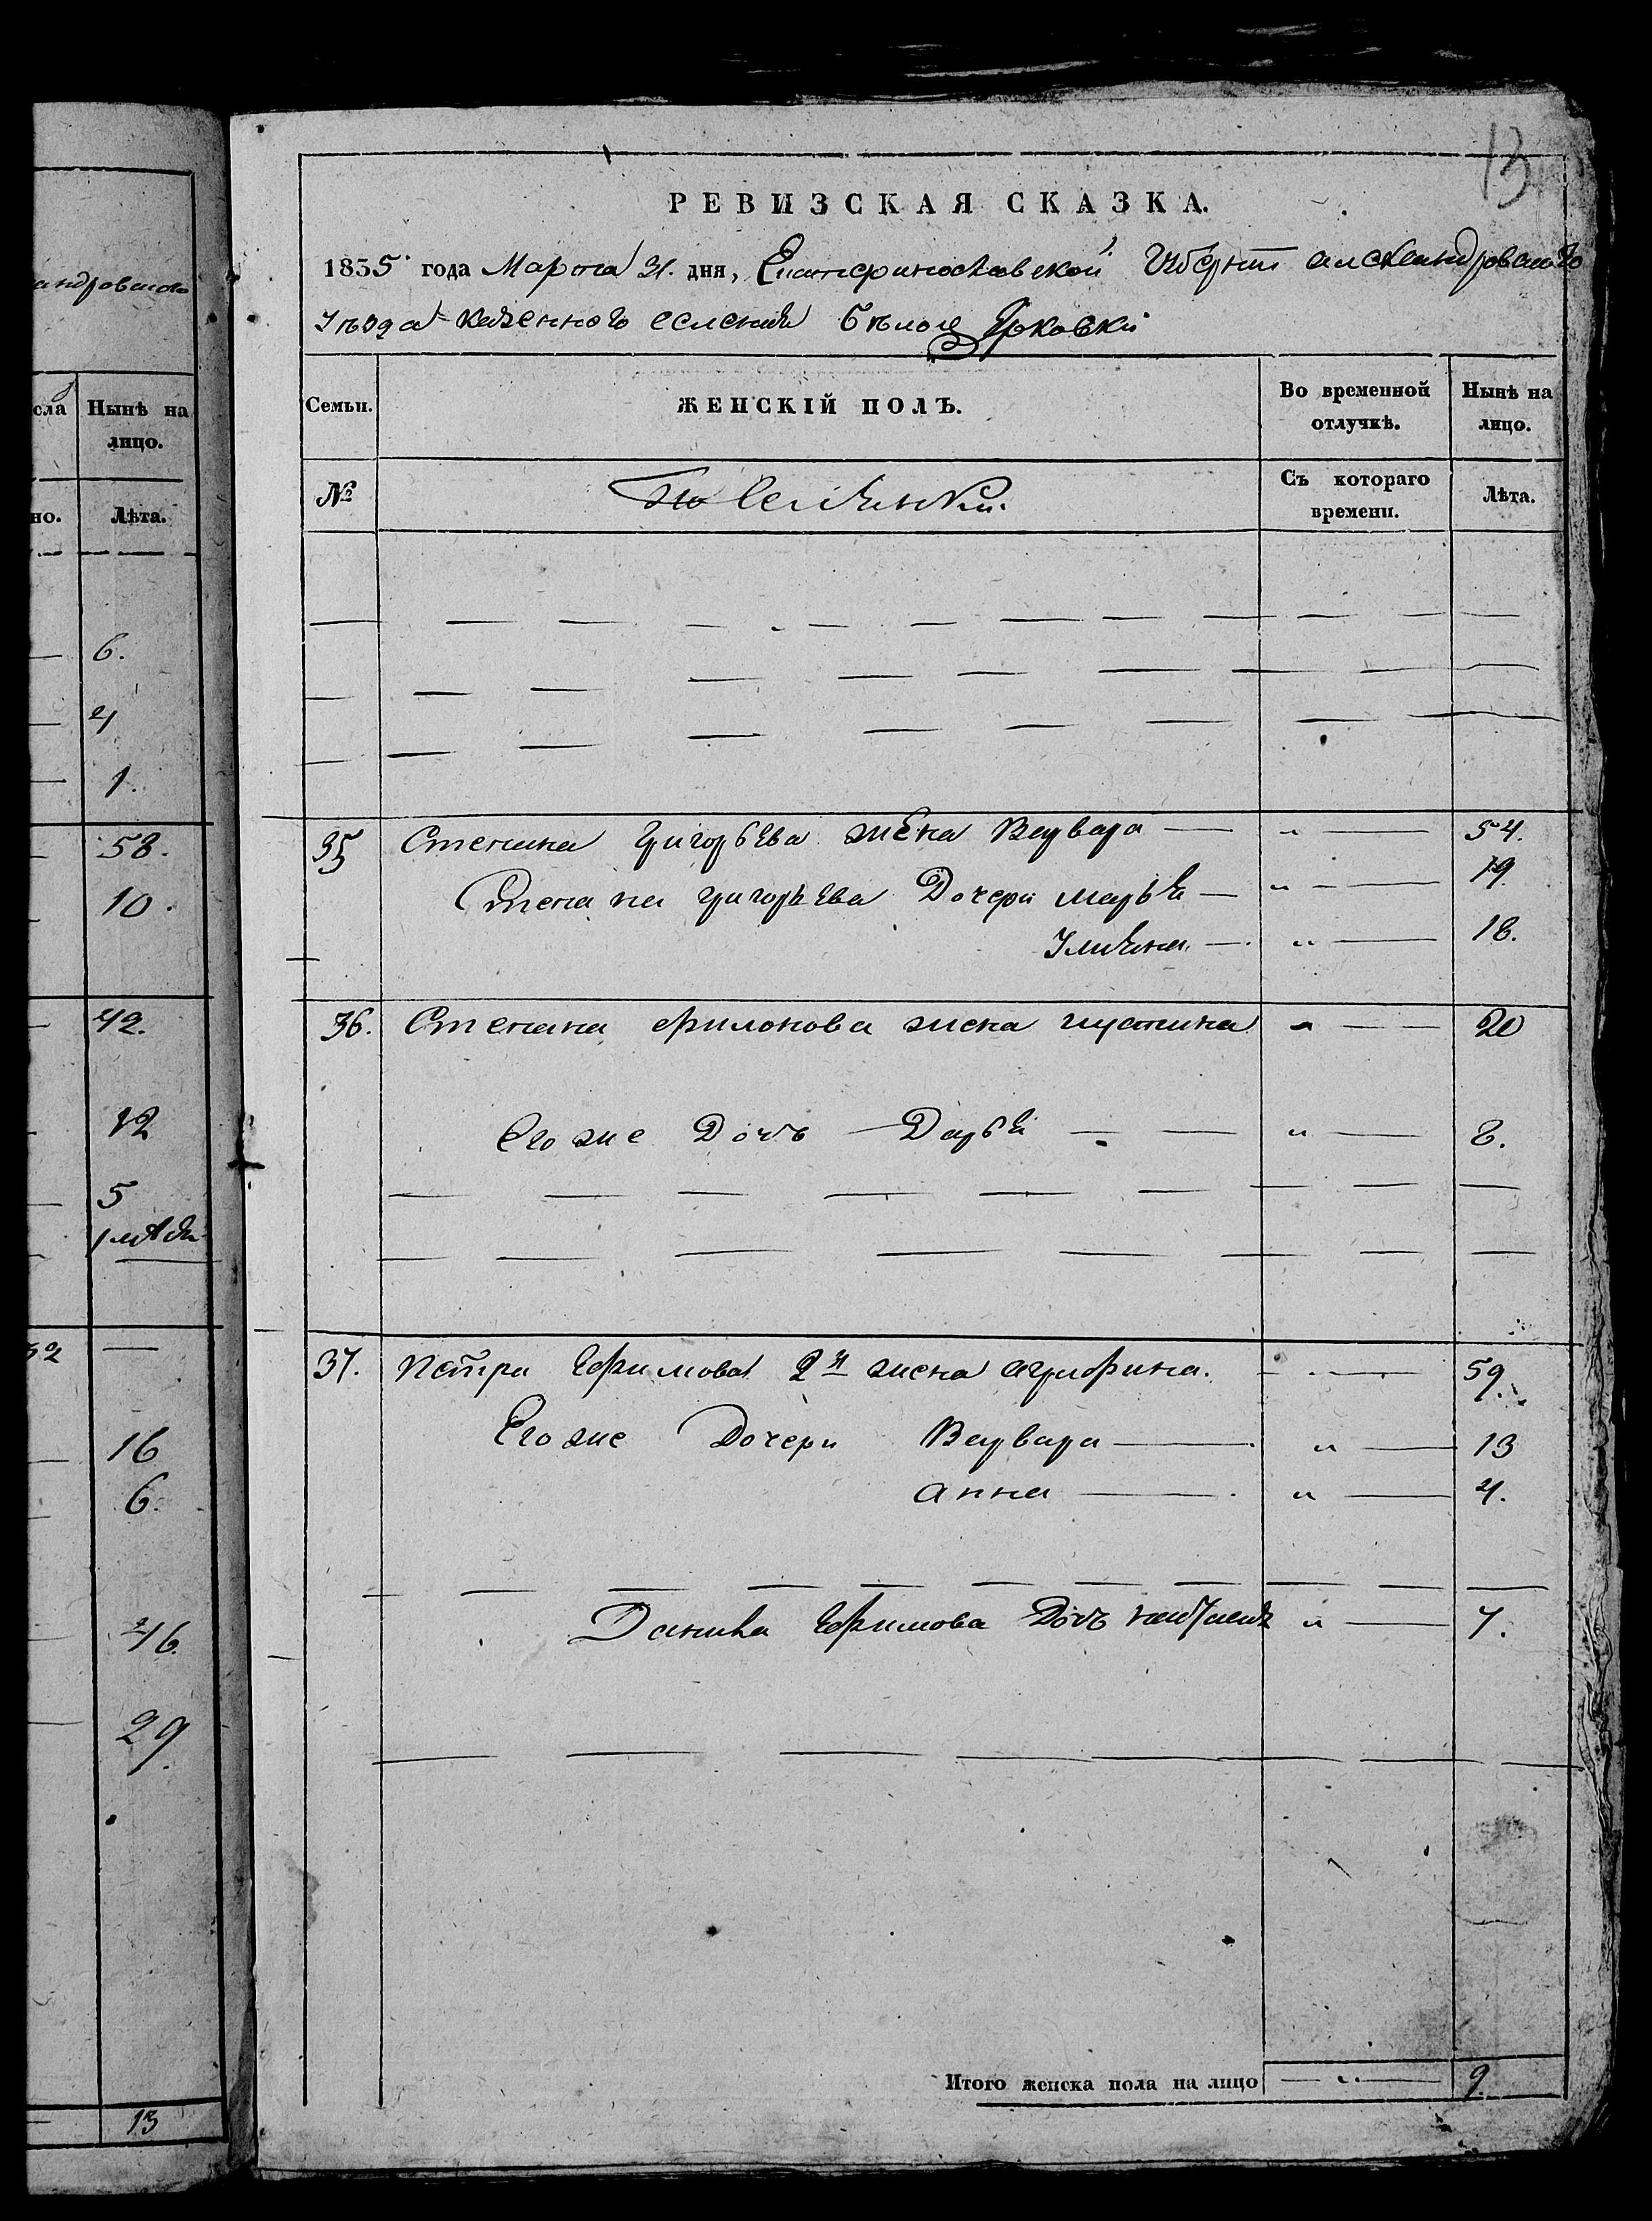 андровскаго
сла Нынѣ на
лицо.
но. Лѣта.
6.
4
1.
58.
10.
42.
12
5
52 —
16
6.
46.
29.
13
13
РЕВИЗСКАЯ СКАЗКА.
1835 года Марта 31. дня, Екатеринославской Губерніи александровскаго
Уѣзда казеннаго селенія Бѣлоцерковки
Семьи. ЖЕНСКІЙ ПОЛЪ. Во временной отлучкѣ. Нынѣ на лицо.
№ Поселянки. Съ котораго времени. Лѣта.
35 Степана Григорьева жена Варвара — " — 54.
Степана григорьева Дочери марья — " — 19.
Ульяна — " — 18.
36. Степана филонова жена иустина " — 20
Его же Дочь — Дарья — — " — 8.
37. Петра Ефимова 2я жена агрифина. — 59.
Его же Дочери Варвара — " — 13
анна — " — 4.
Данила Ефимова Дочь " — 7.
Итого женска пола на лицо — " — 9.